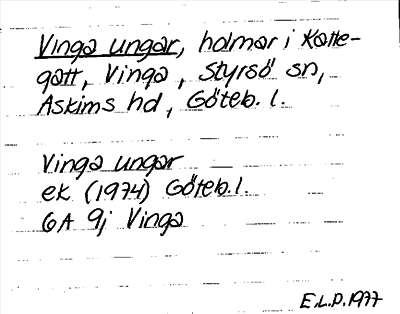 Vinga ungar, holmar i Katte-
gatt, Vinga, Styrsö sn,
Askims hd, Göteb. l.
Vinga ungar
ek (1974) Göteb. l.
6A 9j Vinga
E.L.D. 1977